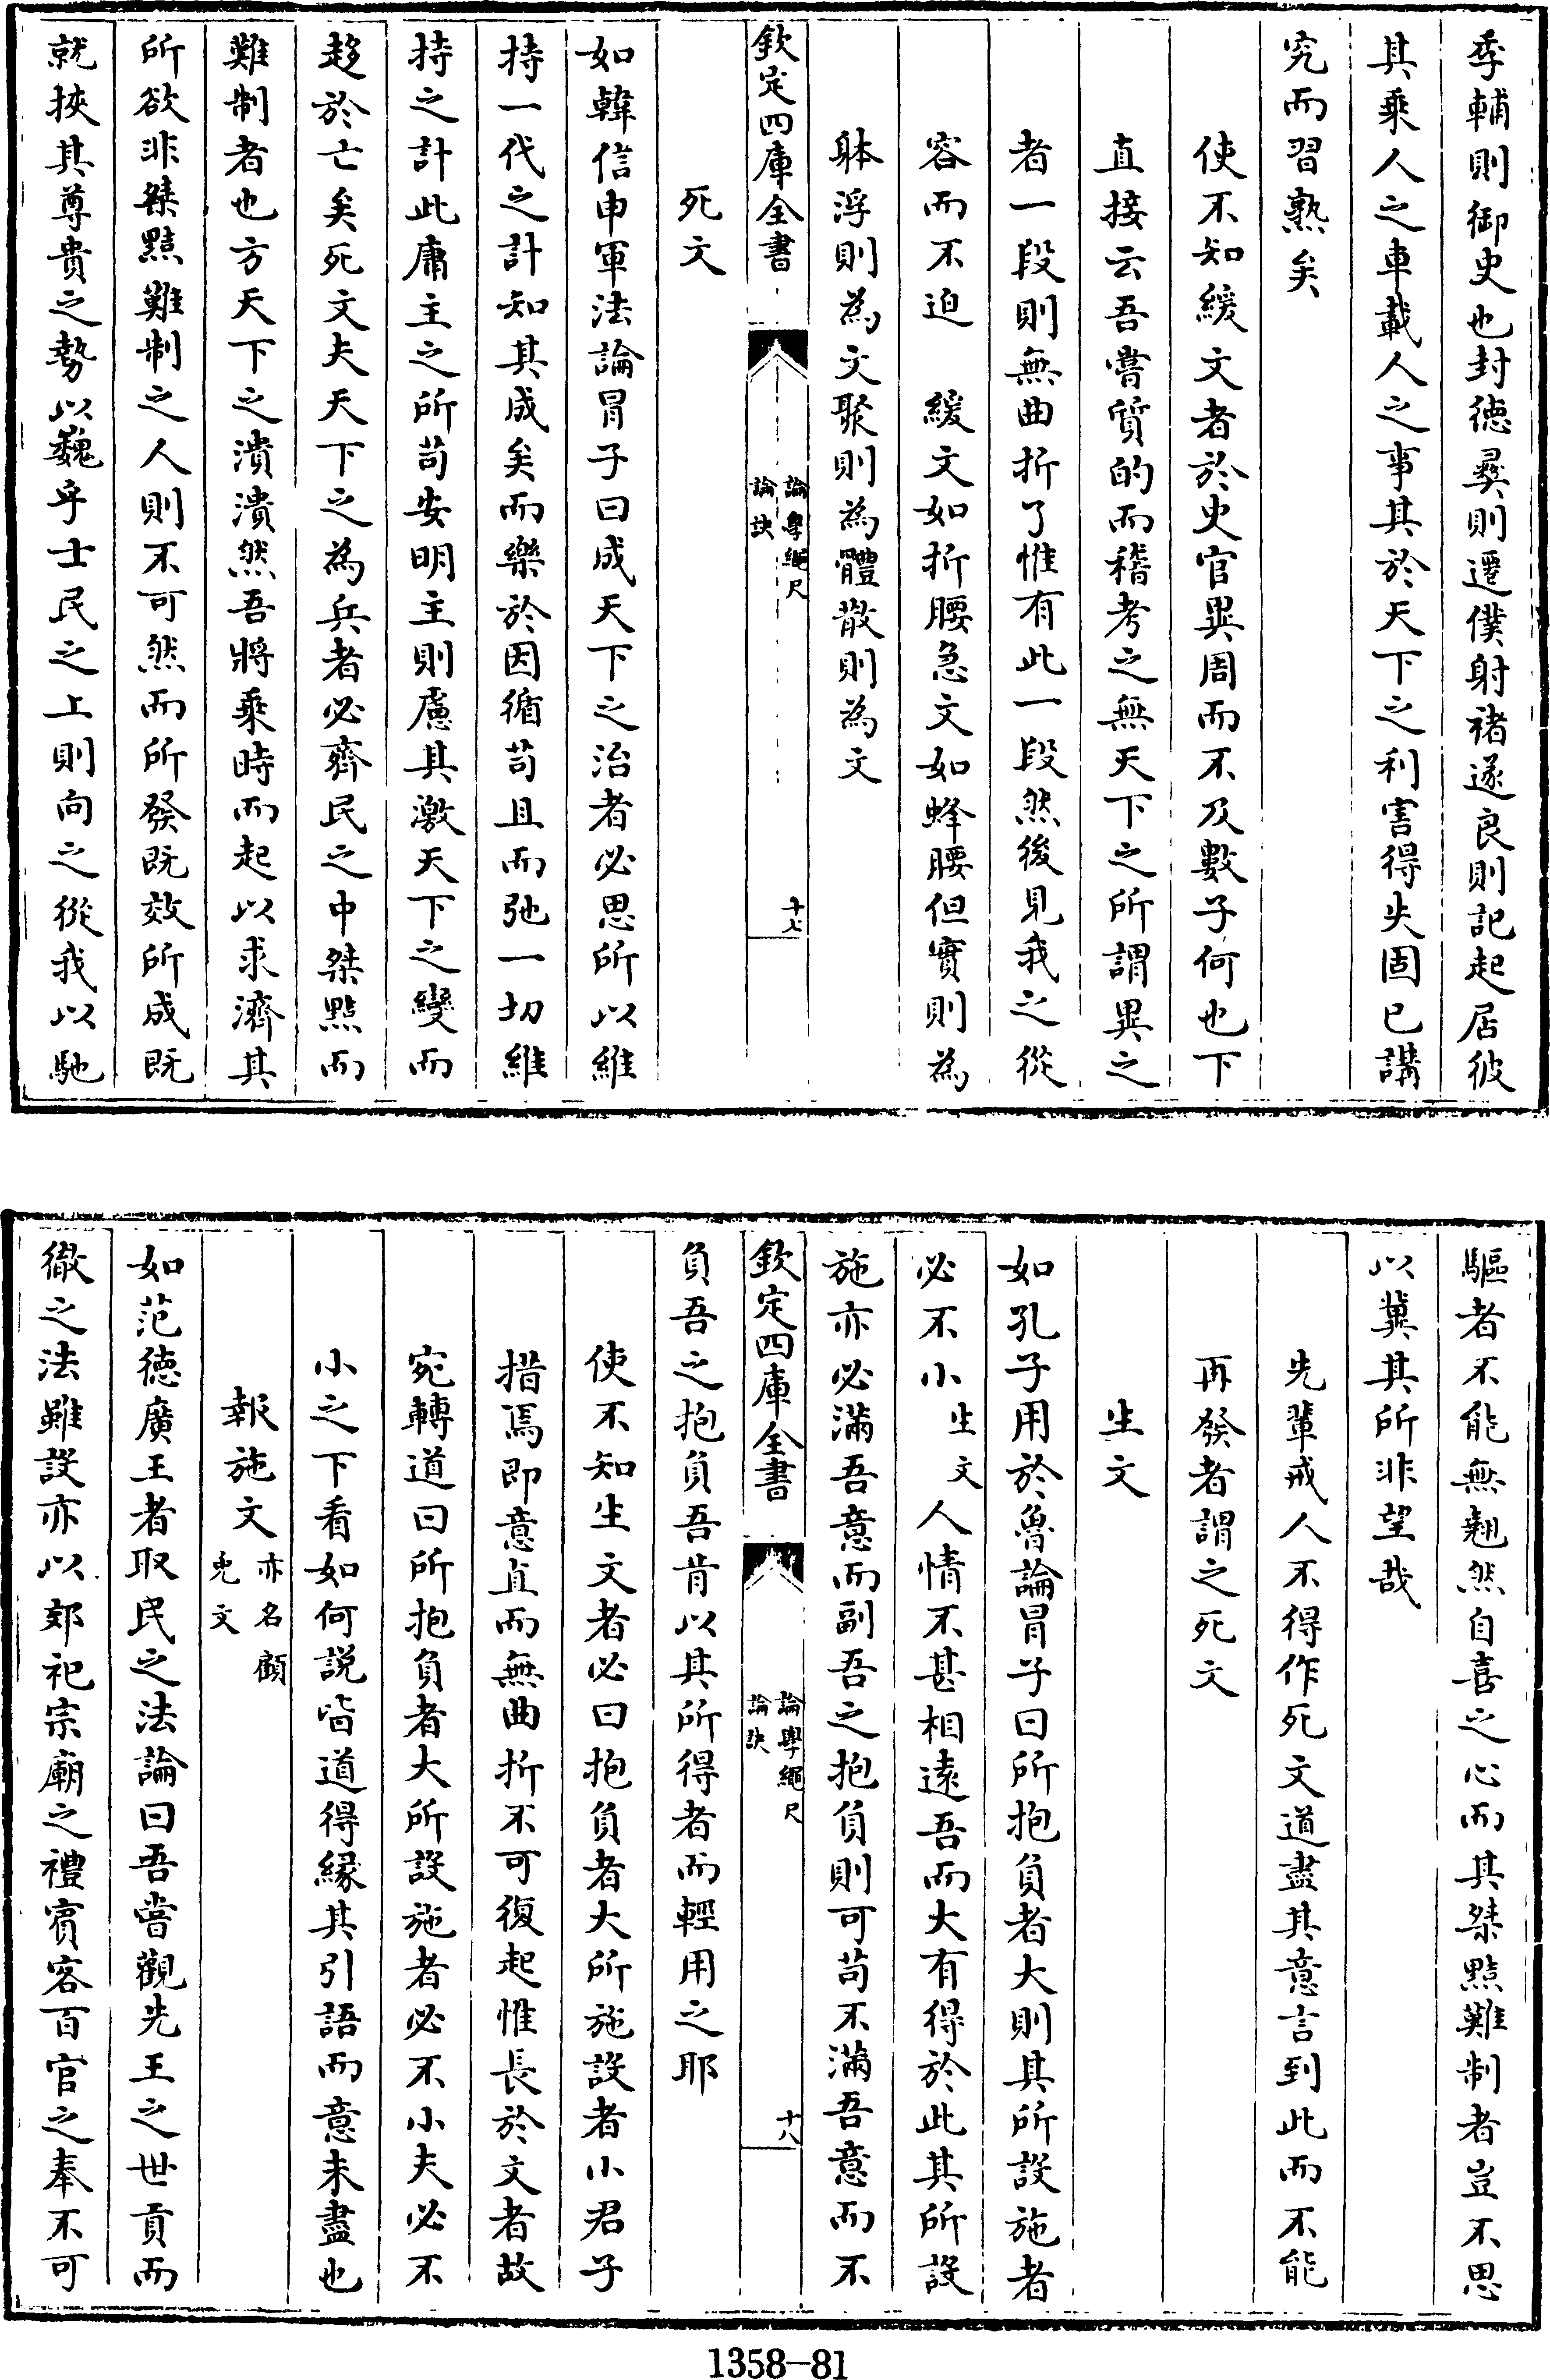 季輔則御史也封德彛則遷僕射褚遂良則記起居彼
其乘人之車載人之事其於天下之利害得失固已講
究而習熟矣
使不知緩文者於史官異周而不及數子何也下
直接云吾嘗質的而稽考之無天下之所謂異之
者一段則無曲折了惟有此一段然後見我之從
容而不迫　緩文如折腰急文如蜂腰但實則為
躰浮則為文聚則為體散則為文
欽定四庫全書
論學繩尺
論訣
十七
死文
如韓信申軍法論冒子曰成天下之治者必思所以維
持一代之計知其成矣而樂於因循苟且而弛一切維
持之計此庸主之所苟安明主則慮其激天下之變而
趍於亡矣死文夫天下之為兵者必齊民之中桀黠而
難制者也方天下之潰潰然吾將乘時而起以求濟其
所欲非桀黠難制之人則不可然而所發既效所成既
就挾其尊貴之勢以巍乎士民之上則向之從我以馳
驅者不能無翹然自喜之心而其桀黠難制者豈不思
以冀其所非望哉
先輩戒人不得作死文道盡其意言到此而不能
再發者謂之死文
生文
如孔子用於魯論冒子曰所抱負者大則其所設施者
必不小生文人情不甚相遠吾而大有得於此其所設
施亦必滿吾意而副吾之抱負則可苟不滿吾意而不
欽定四庫全書
論學繩尺
論訣
十八
負吾之抱負吾肯以其所得者而輕用之耶
使不知生文者必曰抱負者大所施設者小君子
措焉即意直而無曲折不可復起惟長於文者故
宛轉道曰所抱負者大所設施者必不小夫必不
小之下看如何說皆道得緣其引語而意未盡也
報施文亦名顧
兜文
如范德廣王者取民之法論曰吾嘗觀先王之世貢而
徹之法雖設亦以郊祀宗廟之禮賓客百官之奉不可
1358-81